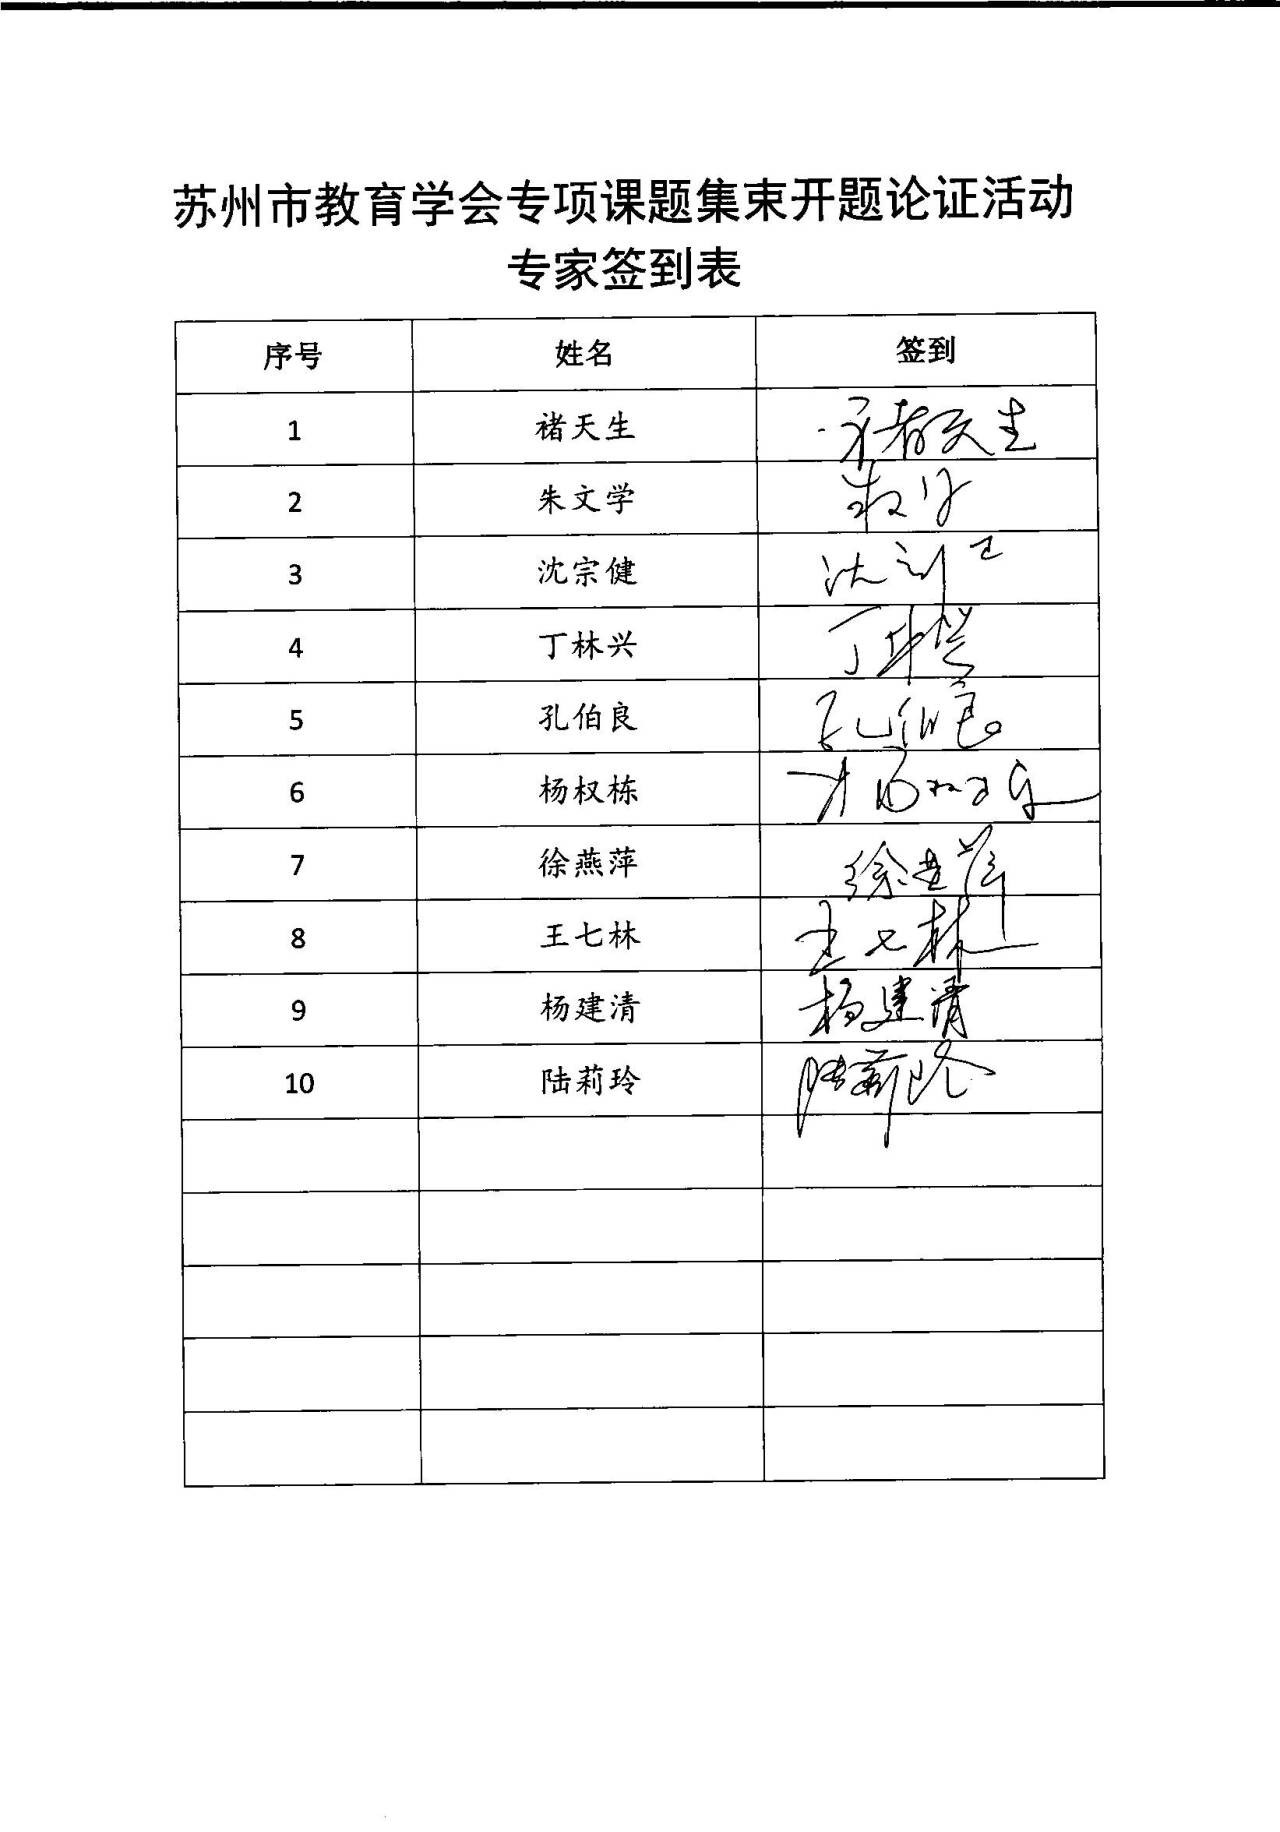 苏州市教育学会专项课题集束开题论证活动
专家签到表
序号 姓名 签到
1 褚天生 褚天生
2 朱文学
3 沈宗健
4 丁林兴 丁林兴
5 孔伯良 孔伯良
6 杨权栋
7 徐燕萍 徐燕萍
8 王七林 王七林
9 杨建清 杨建清
10 陆莉玲 陆莉玲